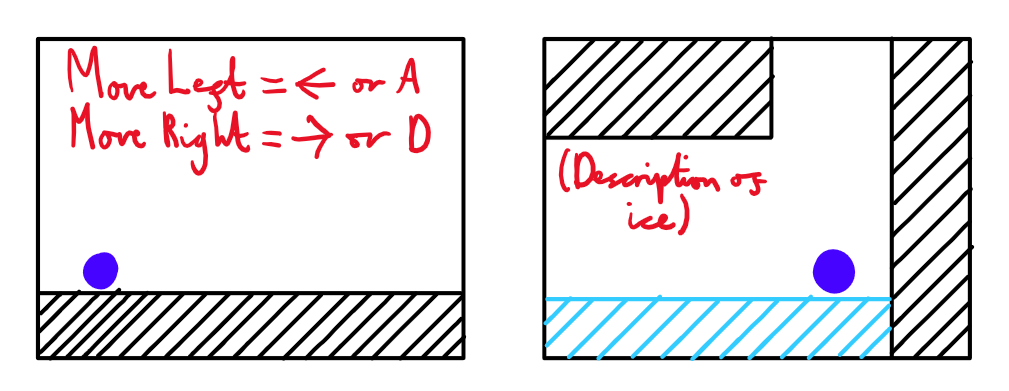 Move Left = ← or A
Move Right = → or D
(Description of
ice)